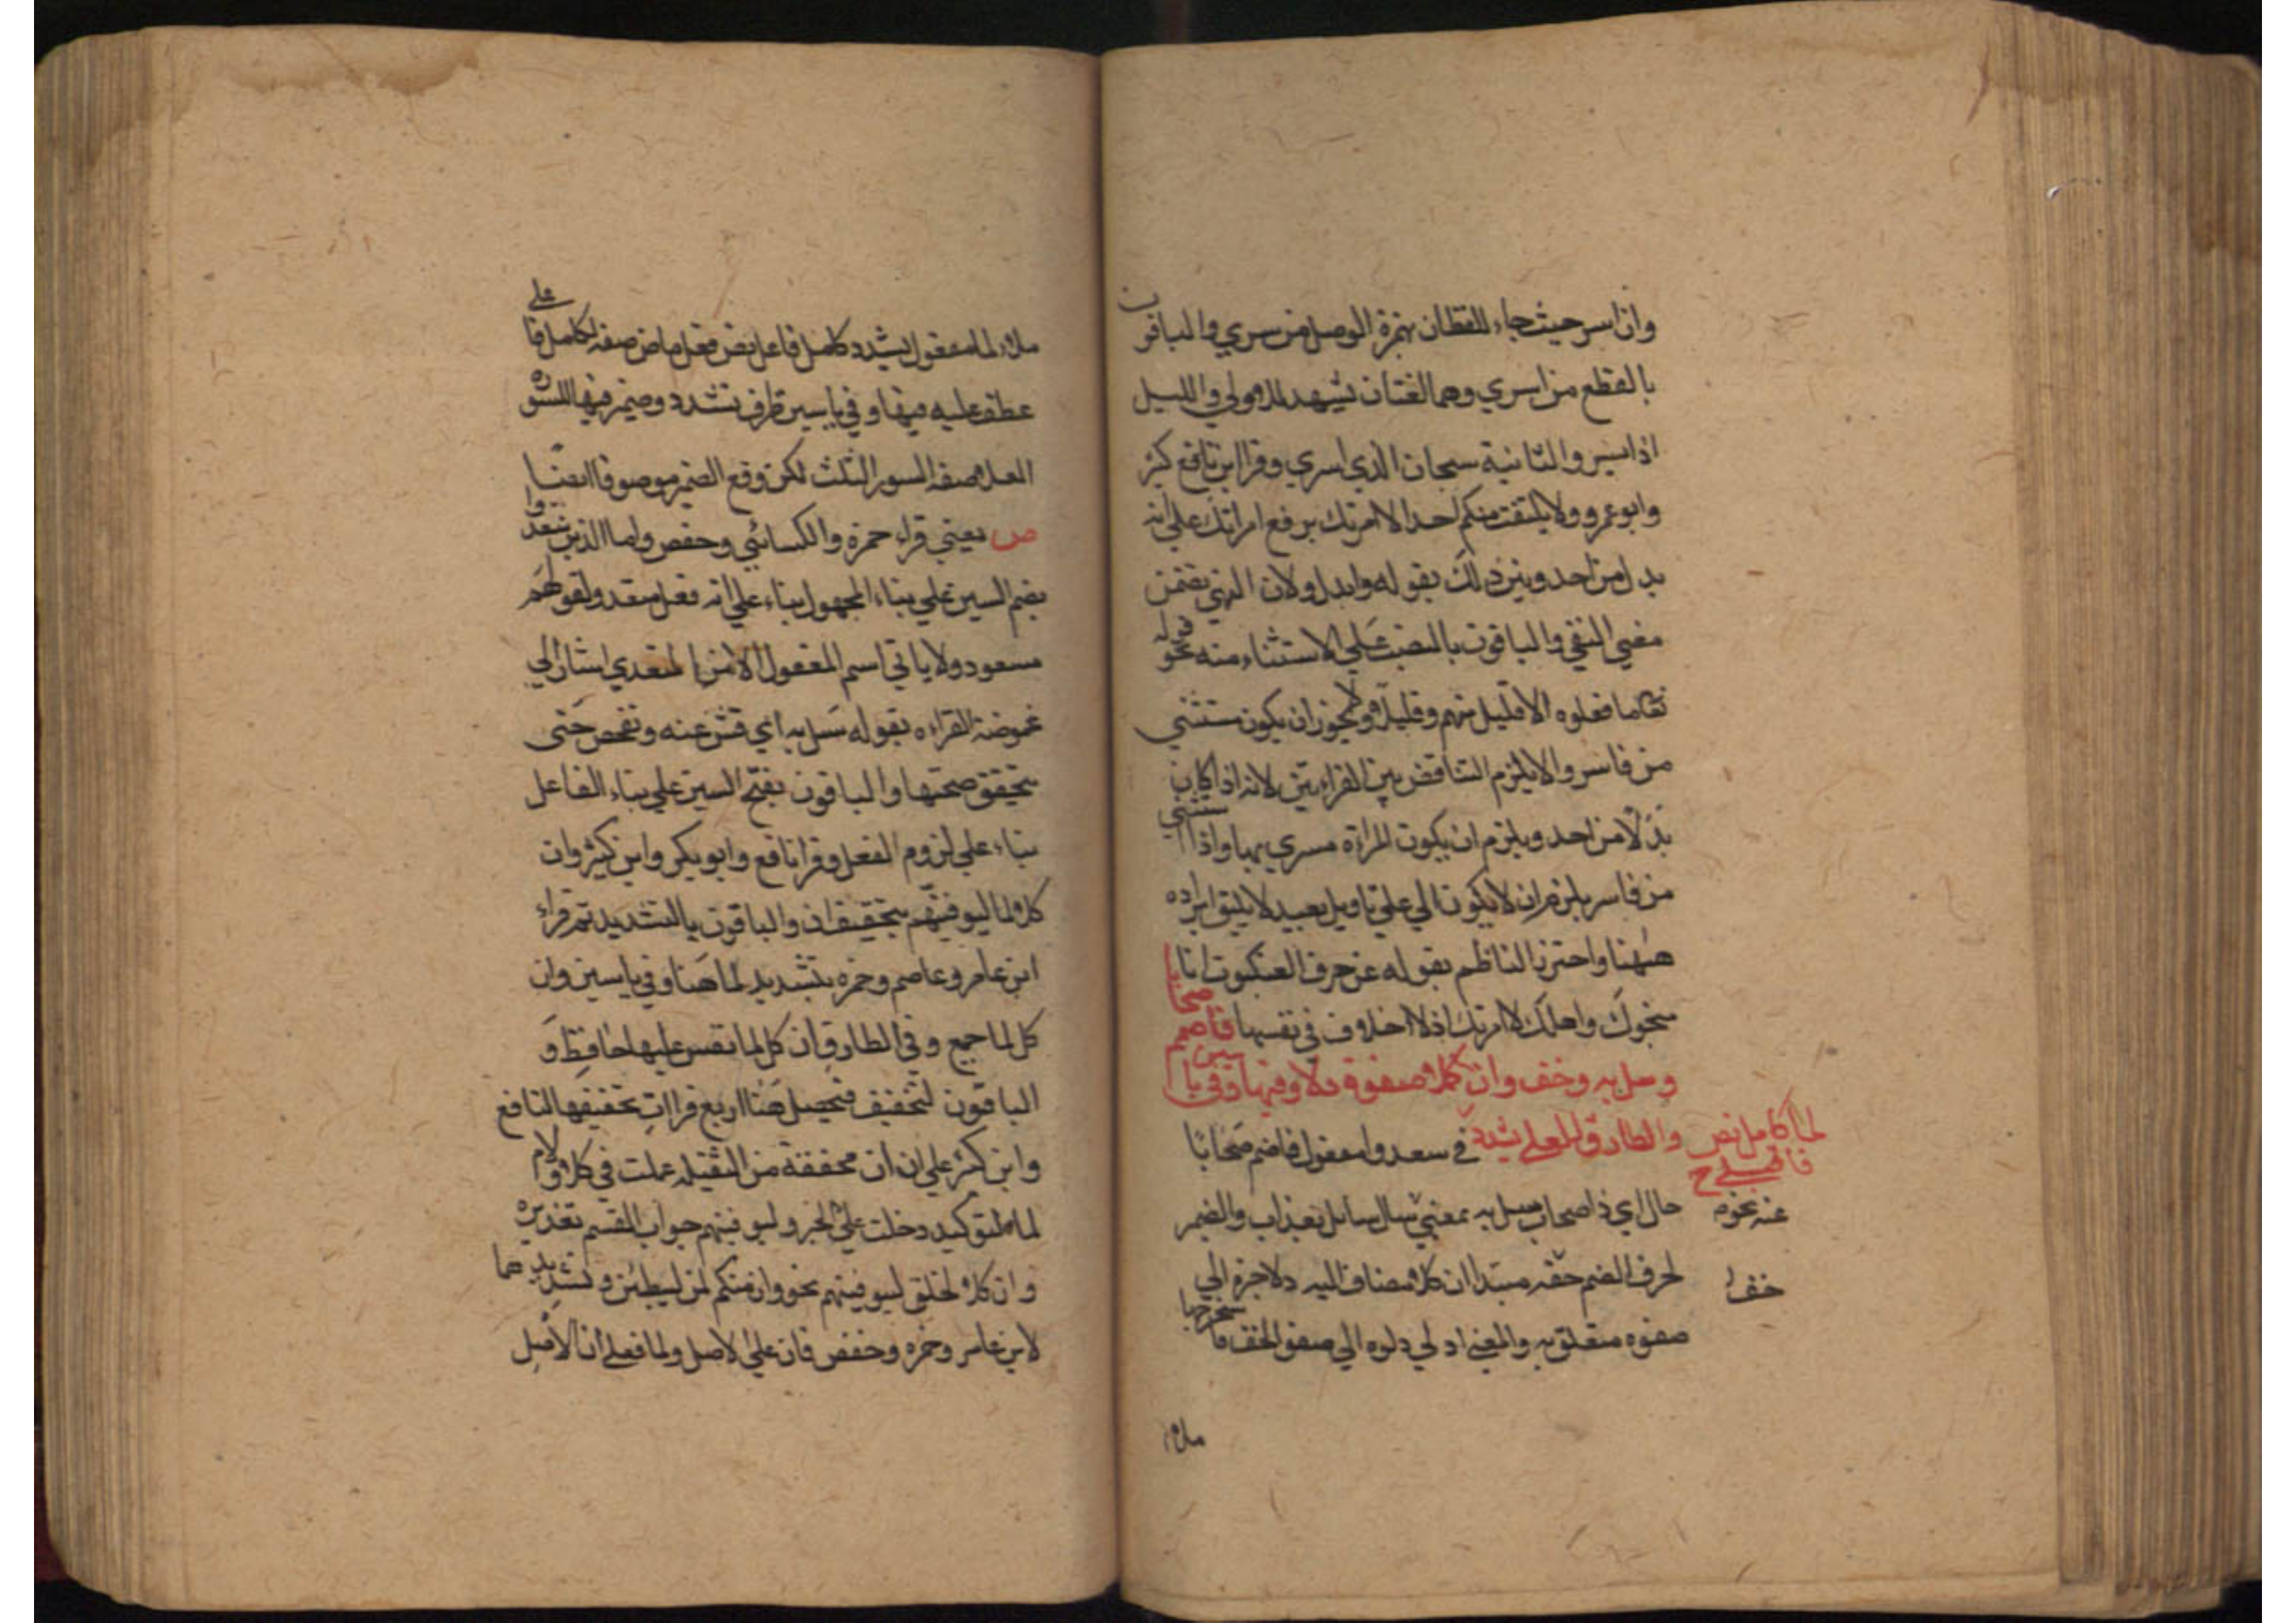 وان اسر حيث جاء للفظان بهمزة الوصل من سري والباقون
بالقطع من اسري وهما لغتان تشهد للاولي والليل
اذا يسر والثانية سبحان الذي اسري وقرا ابن كثير
وابو عمرو ولا يلتفت منكم احد الا امرتك برفع امراتك علي انه
بدل من احد وبين ذلك بقوله وابدلو لان النهي تضمن
معني النفي والباقون بالنصب علي الاستثناء منه نحو قوله
تعالي ما فعلوه الا قليل منهم وقليلا ولا يجوز ان يكون مستثني
من فاسر والا يلزم التناقض بين القراءتين لانه اذا كان
بدلا من احد ويلزم ان يكون المراة مسري بها واذا استثني
من فاسر يلزم ان لا يكون الي علي تاويل بعيد لا يليق ايراده
ههنا واحترز الناظم بقوله عن حرف العنكبوت انا
منجوك واهلك الا امرتك اذ لا اخلاف في نفسها فاضمم صحابا
وسل به وخف وان كلا صفوة دلا وفيها وفي يا سين
والطارق العلي يشدد في سعدوا مفعول فاضمم صحابا
لما كامل نص فاعتلي ح
حال اي ذا صحاب سل به بمعني سال سائل بعذاب والضمير
عنه نحوه
لحرف الضم خفه مبتدا ان كلا مضاف اليه دلا جزه الي
خف ا
صفوه متعلق به والمعني ادلي دلوه الي صفو الخف فا
ملاه
ملاه لما مفعول يشدد كامل فاعل نص فعل ماض صفه لكامل فا علي
عطف عليه فيها وفي ياسين ظرف تشدد وضمير فيها للسوره
العلا صفه السور الثلث لكن وقع الضمير موصوفا ايضا
ص يعني قراء حمزة والكسائي وحفص واما الذين سعدوا
بضم السين علي بناء المجهول بناء علي انه فعل متعد ولقولهم
مسعود ولا ياتي اسم المفعول الا من المتعدي اشار الي
غموضة القراءه بقوله سل به اي فتش عنه وتفحص حتي
تتحقق صحتها والباقون بفتح السين علي بناء الفاعل
بناء علي لزوم الفعل وقرا نافع وابو بكر وابن كثير وان
كلا لما ليوفينهم بتخفيف ان والباقون بالتشديد ثم قراء
ابن عامر وعاصم وحمزه بتشديد لما هنا وفي ياسين وان
كل لما جميع وفي الطارق ان كل لما نفس عليها حافظ و
الباقون لتخفيف فتحصل هنا اربع قراات تخفيفها لنافع
وابن كثير علي ان ان مخففة من الثقيله عملت في كلا ولام
لما للتوكيد دخلت علي الخبر وليوفينهم جواب القسم تقديره
وان كلا لخلق ليوفينهم نحو وان منكم لمن ليبطئن وتشديدهما
لابن عامر وحمزه وحفص فان علي الاصل ولما فعلي ان الاصل